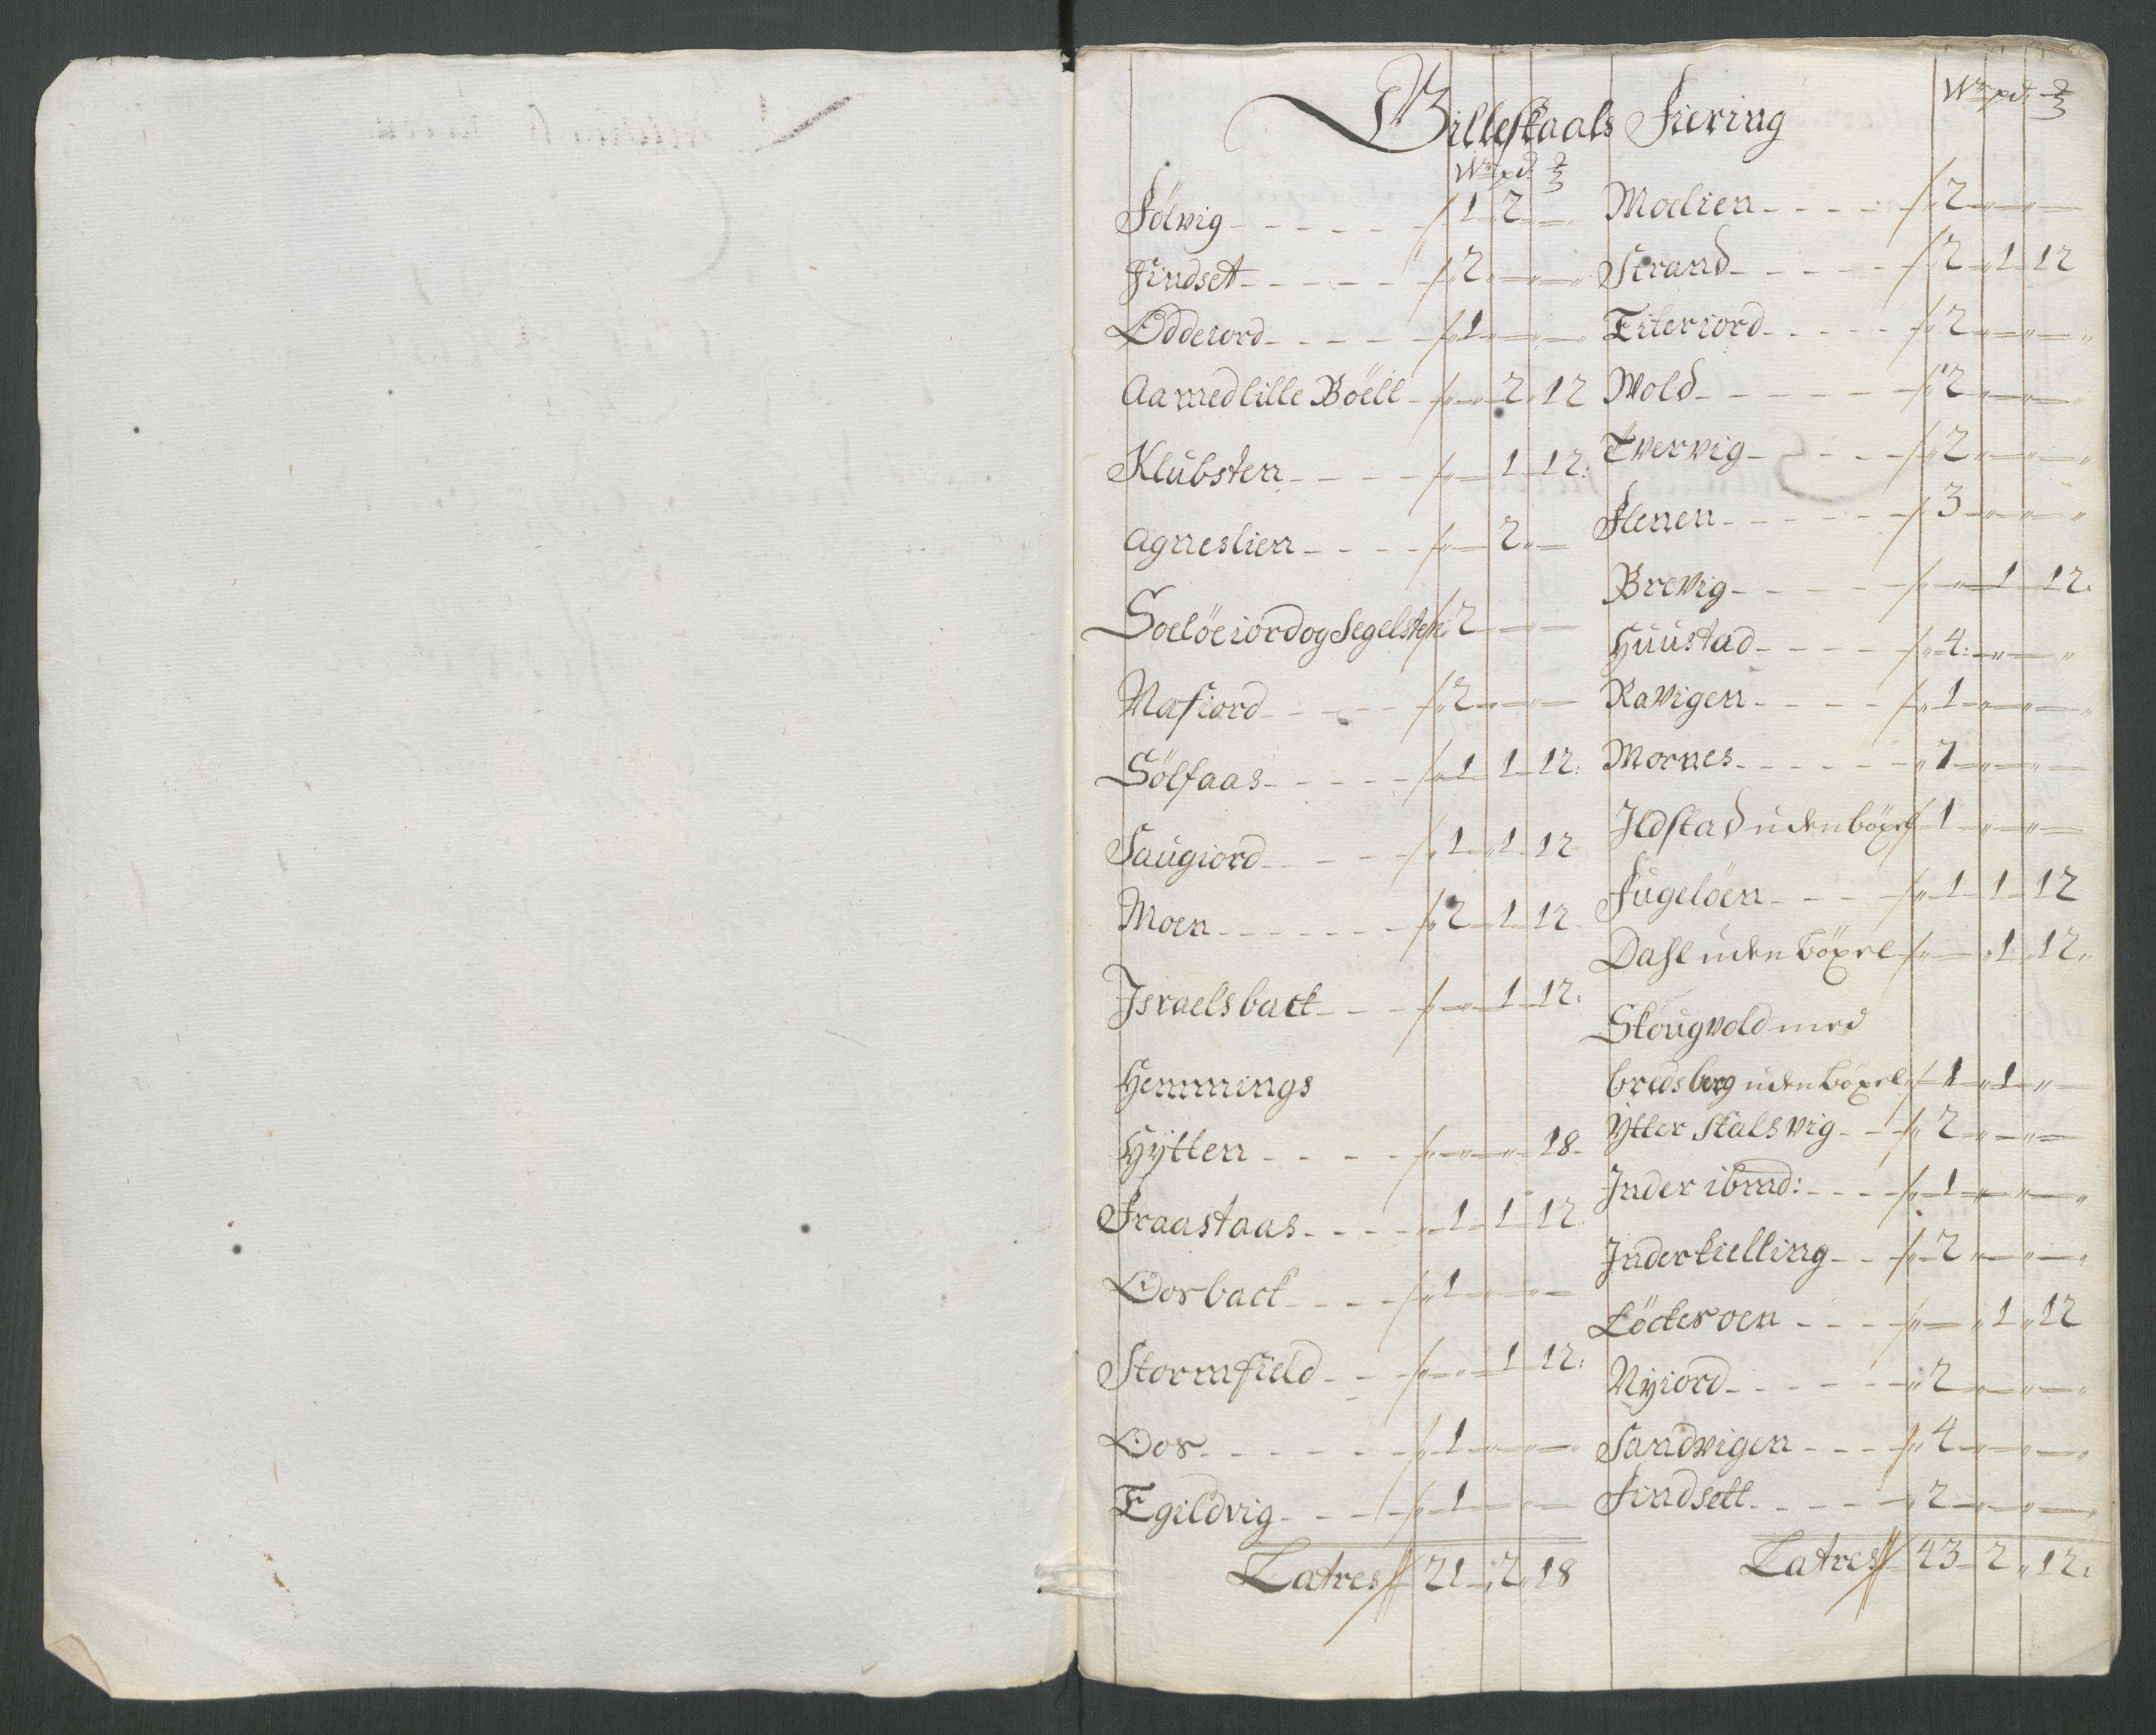 Billeskaals Fiering
Wr pd. ℔
Fölvig - - - - - / 1 2 -
Findset - - - - - / 2 - -
Odderord - - - - / 1 - -
Aa med lille Böell - / - 2 12
Klübsten - - - - / - 1 12:
Agneslien - - - - / - 2 -
Soelöeiord og Segelsten / 2 - -
Nafiord - - - - / 2 - -
Sölfaas - - - - / 1 1 12:
Saugiord - - - - / 1 1 12
Moen - - - - - / 2 1 12
Israelsback - - - / - 1 12:
Hemmings
Hÿtten - - - - / - - 18
Fraastaas - - - - 1 1 12
Oorback - - - - / 1 - -
Stormfield - - - / - 1 12:
Oos - - - - - / 1 - -
Egildvig - - - - / 1 - -
Latres // 21 2 18
Wr pd. ℔
Moelien - - - - / 2 - -
Strand - - - - - / 2 1 12
Eiteriord - - - - / 2 - -
Wold - - - - - / 2 - -
Tvervig - - - - / 2 - -
Flenen - - - - - / 3 - -
Brevig - - - - / - 1 12.
Huüstad - - - - / 4: - -
Ravigen - - - - / 1 - -
Mornes - - - - - 7 - -
Ildstad uden böxel / 1 - -
Fügelöen - - - / 1 1 12
Dahl uden böxel / - 1 12
Skougvold med
bredsberg uden böxel / 1 1 -
Ÿtter Skalsvig - - / 2 - -
Inder ibmd: - - - / 1 - -
Inderkielling - - / 2 - -
Löckeroen - - - / - 1 12
Nyiord - - - - - 2 - -
Sandvigen - - - / 4 - -
Findsett - - - - 2 - -
Latres // 43 2 12: